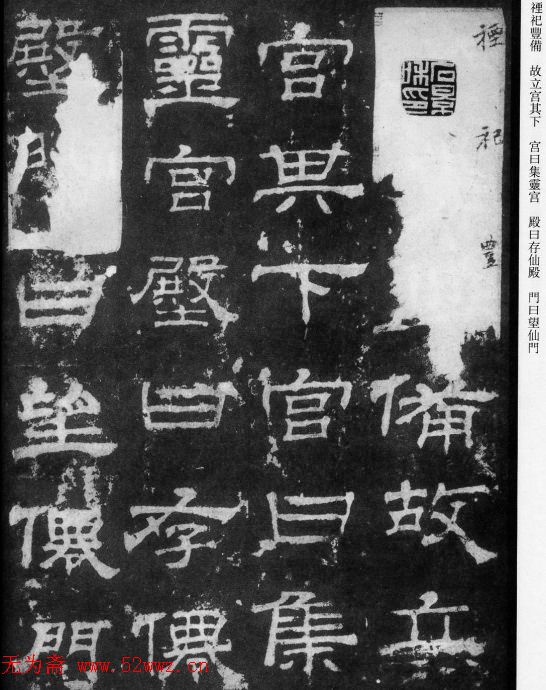 禋祀豐備　故立宮其下　宮曰集靈宮　殿曰存仙殿　門曰望仙門
禋祀豊備故立
宮其下宮曰集
靈宮壂曰存僊
壂門曰望僊門
无为斋 www.52wwz.cn